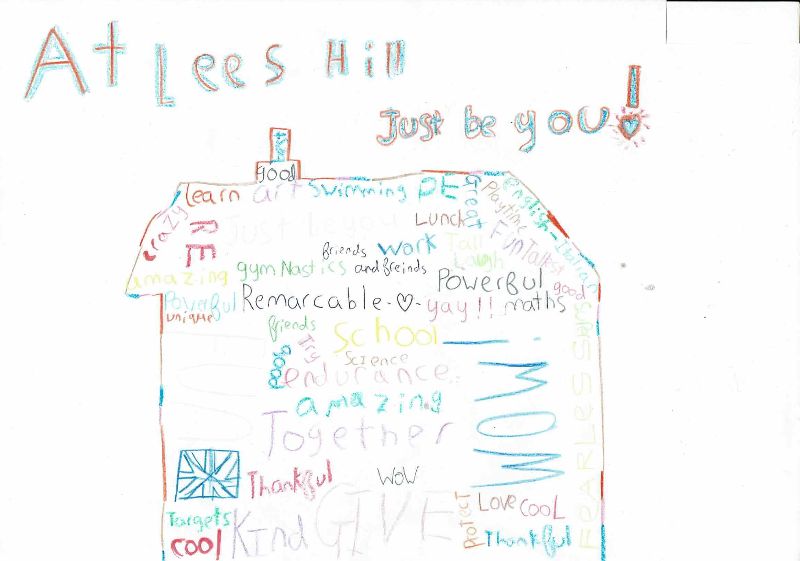 At Lees Hill
Just be you!
Just
good
crazy learn art swimming PE Great Playtime English-Italian
RE Just be you Lunch Fun Tallest
friends work Tall
amazing gymNastics and freinds Laugh
Powerful Remarcable-♡-yay!! Powerful maths good
unique
friends School
Try Science
good endurance
amazing
Together
WOW!
FEARLESS
Thankful WOW
GIVE Protect Love cool
Targets Kind Thankful
cool